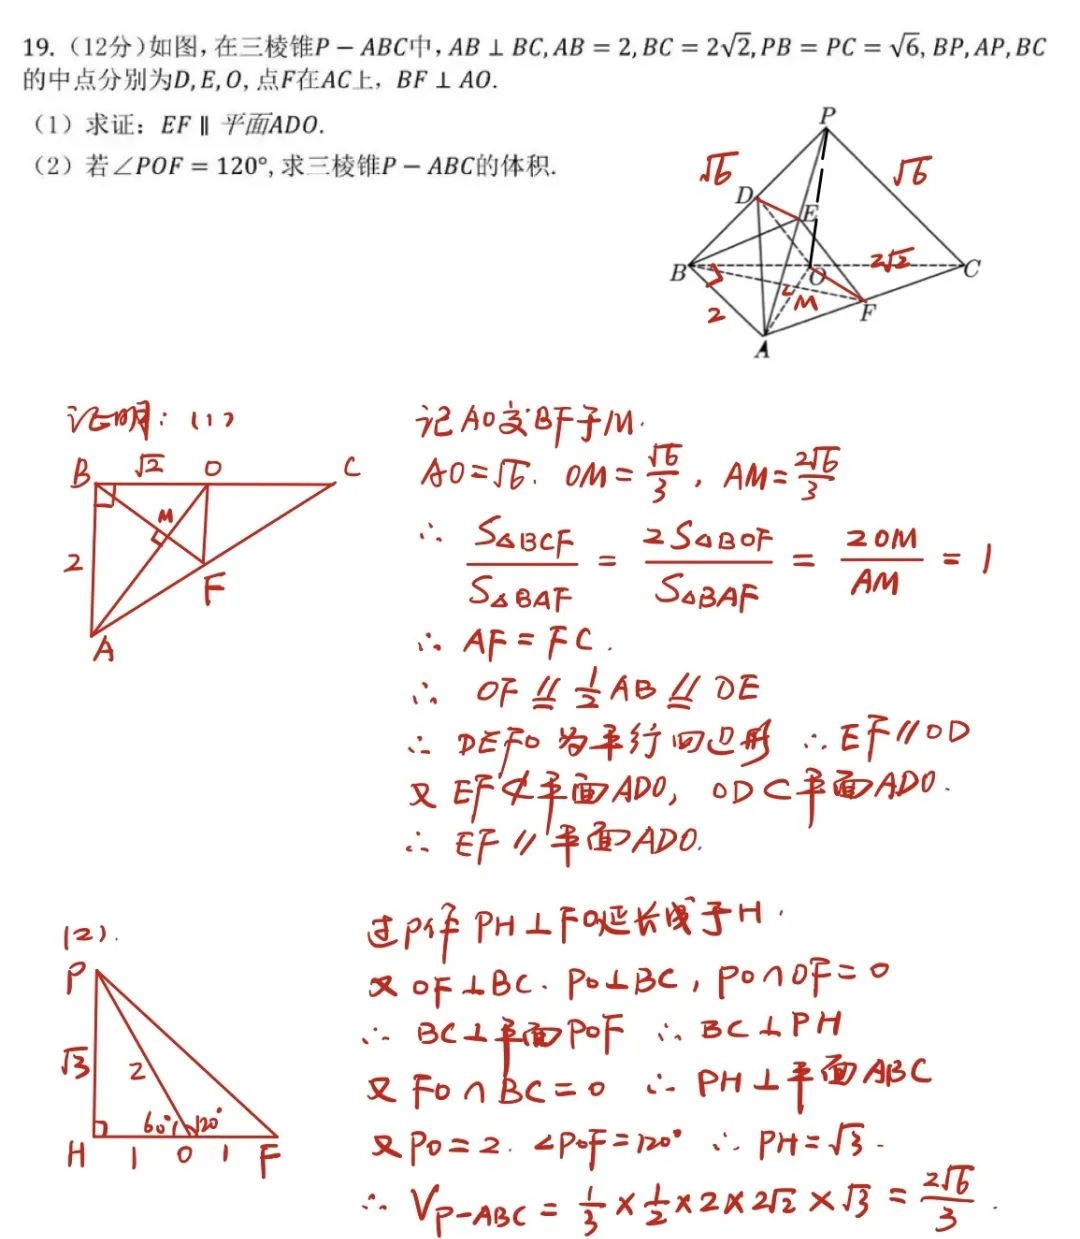 19.（12分）如图，在三棱锥P − ABC中，AB ⊥ BC, AB = 2, BC = 2√2, PB = PC = √6, BP, AP, BC
的中点分别为D, E, O, 点F在AC上，BF ⊥ AO.
（1）求证：EF ∥ 平面ADO.
（2）若∠POF = 120°, 求三棱锥P − ABC的体积.
P
√6
√6
D
E
B
O
2√2
C
2
M
F
A
证明：(1)
B √2 O C
M
2
F
A
记AO交BF于M.
AO=√6. OM=√6/3, AM=2√6/3
∴ S△BCF/S△BAF = 2S△BOF/S△BAF = 2OM/AM = 1
∴ AF = FC.
∴ OF ∥= 1/2 AB ∥= DE
∴ DEFO为平行四边形 ∴ EF∥OD
又 EF⊄平面ADO, OD⊂平面ADO.
∴ EF∥平面ADO.
(2).
P
√3 2
60° 120°
H 1 O 1 F
过P作PH⊥FO延长线于H.
又OF⊥BC. PO⊥BC, PO∩OF=O
∴ BC⊥平面POF ∴ BC⊥PH
又FO∩BC=O ∴ PH⊥平面ABC
又PO=2. ∠POF=120° ∴ PH=√3.
∴ VP−ABC = 1/3 × 1/2 × 2 × 2√2 × √3 = 2√6/3.